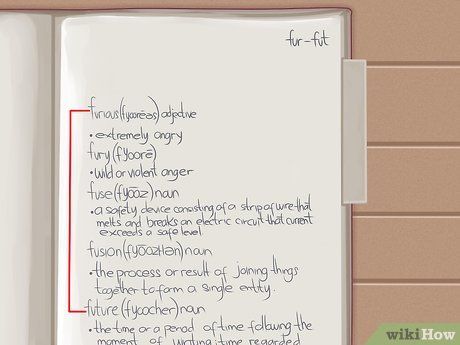 fur-fut
furious (fyoorēəs) adjective
• extremely angry
fury (fyoorē)
• wild or violent anger
fuse (fyōoz) noun
• a safety device consisting of a strip of wire that
melts and breaks an electric circuit that current
exceeds a safe level
fusion (fyōozHən) noun
• the process or result of joining things
together to form a single entity.
future (fyoocher) noun
• the time or a period of time following the
moment of writing time regarded
wikiHow